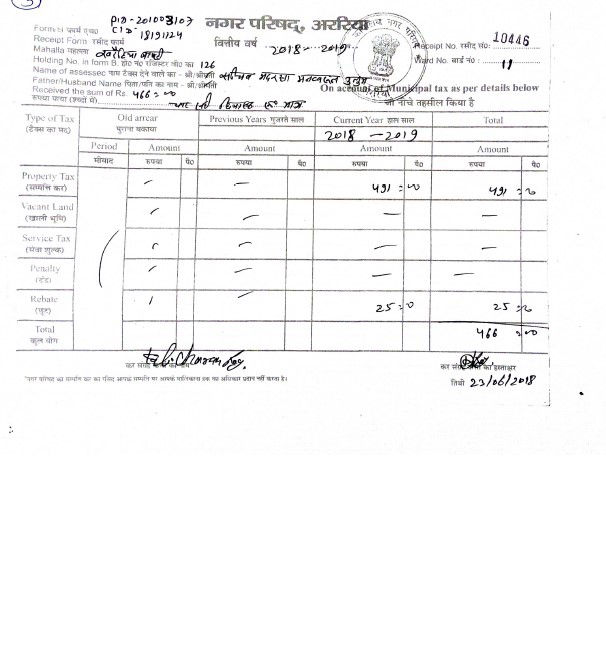 PID-201003107
नगर परिषद्, अररिया
CID-18191124
Form si फार्म एस०
Receipt Form रसीद फार्म
वित्तीय वर्ष 2018-2019
Receipt No. रसीद सं०: 10446
Mahalla महल्ला
Ward No. वार्ड नं०: 11
Holding No. in form B. हो० नं० रजिस्टर बी० का 126
Name of assessee नाम टैक्स देने वाले का - श्री/श्रीमति सचिव मदरसा
Father/Husband Name पिता/पति का नाम - श्री/श्रीमति
On account of Municipal tax as per details below
Received the sum of Rs. 466=00
रूपया पाया (शब्दों में) चार सौ छियासठ रू० मात्र जो नीचे तहसील किया है
Type of Tax Old arrear Previous Years गुजरते साल Current Year हाल साल Total
(टैक्स का मद) पुराना बकाया 2018-2019
Period Amount Amount Amount Amount
मीयाद रूपया पै० रूपया पै० रूपया पै० रूपया पै०
Property Tax - - 491=00 491=00
(सम्पत्ति कर)
Vacant Land - - - -
(खाली भूमि)
Service Tax - - - -
(सेवा शुल्क)
Penalty - - - -
(दंड)
Rebate - - 25=0 25=00
(छूट)
Total 466=00
कुल योग
कर संग्रह
कर संग्रह का हस्ताक्षर
तिथी 23/06/2018
*नगर परिषद का सम्पत्ति कर का रसिद आपके सम्पत्ति पर आपके मालिकाना हक का अधिकार प्रदान नहीं करता है।